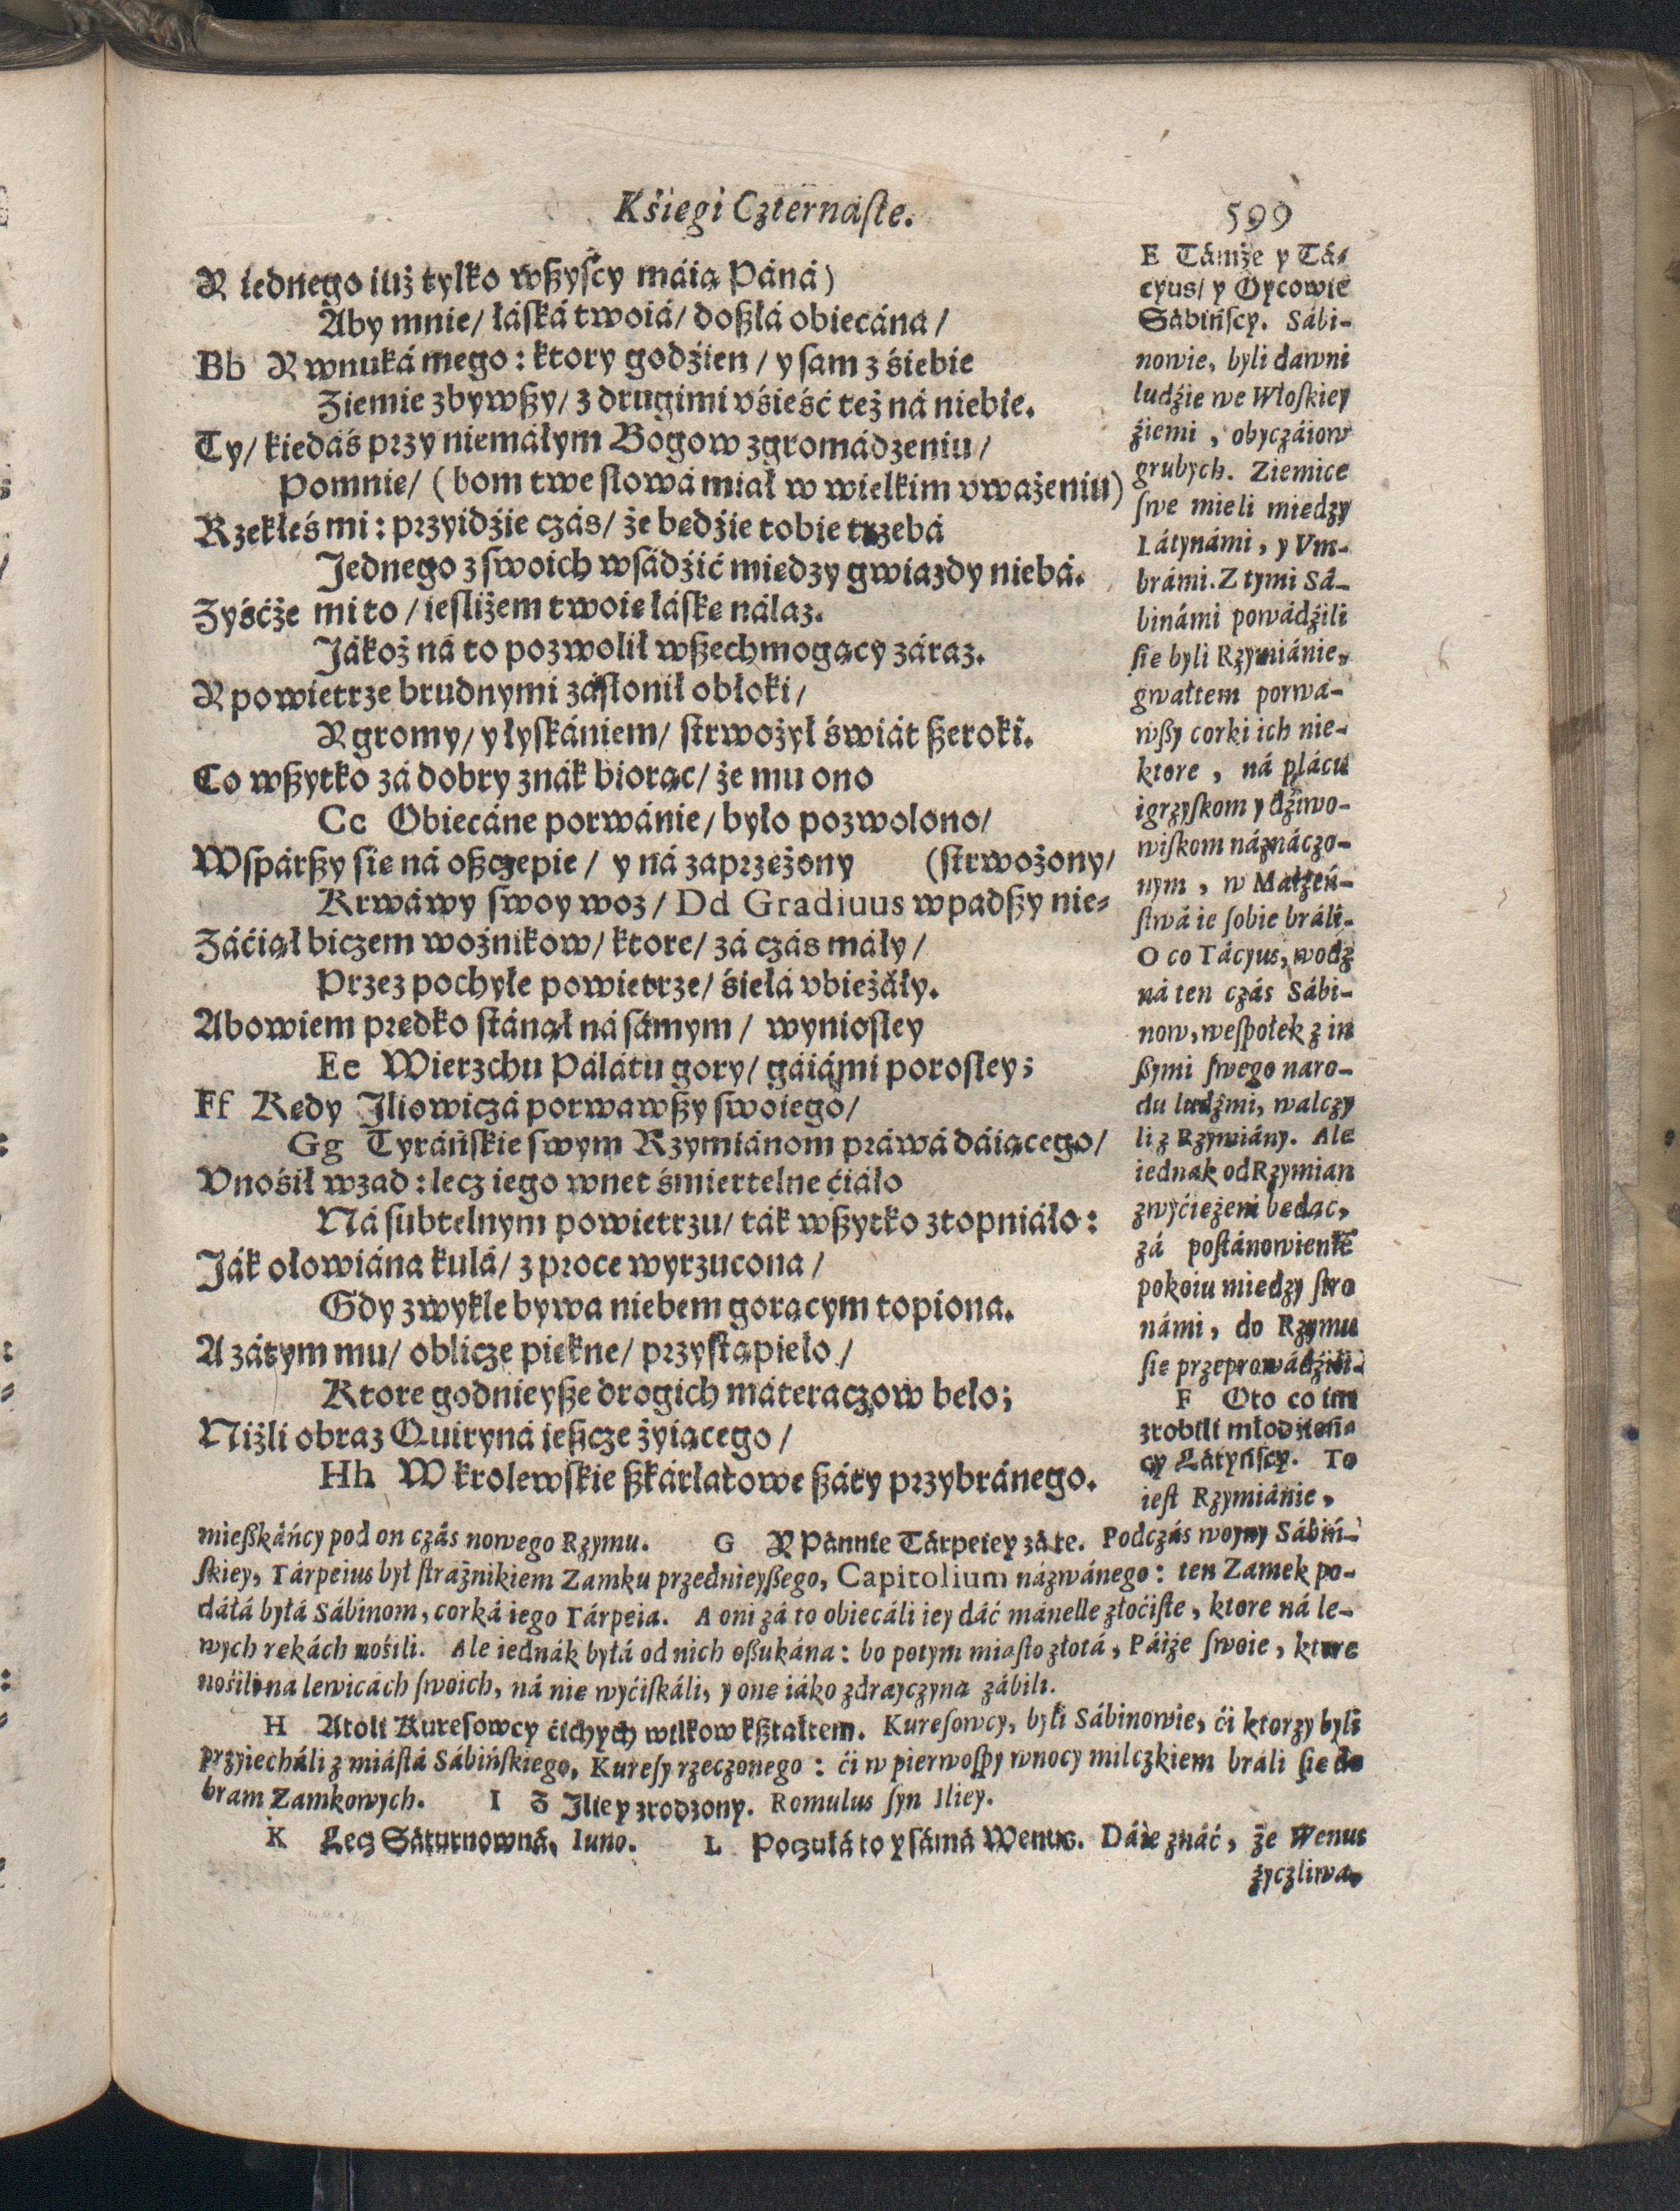 Kśiegi Czternaste.
599
Y iednego iuż tylko wßyſcy máią Páná)
Aby mnie/ łáſká twoiá/ doßłá obiecána/
Bb Y wnuká mego: ktory godźien/ y ſam z śiebie
Ziemie zbywßy/ z drugimi vśieść też ná niebie.
Ty/ kiedáś przy niemáłym Bogow zgromádzeniu/
Pomnie/ (bom twe ſłowá miał w wielkim vważeniu)
Rzekłeś mi: przyidźie czás/ że bedźie tobie trzebá
Jednego z ſwoich wſádźić miedzy gwiazdy niebá.
Zyśćże mi to/ ieſliżem twoie łáſke nálaz.
Jákoż ná to pozwolił wßechmogący záraz.
Y powietrze brudnymi záſłonił obłoki/
Y gromy/ y łyſkániem/ ſtrwożył świát ßeroki.
Co wßytko zá dobry znák biorąc/ że mu ono
Cc Obiecáne porwánie/ było pozwolono/
Wſpárßy ſie ná oßczepie/ y ná zaprzeżony (ſtrwożony/
Krwáwy ſwoy woz/ Dd Gradiuus wpadßy nie-
Záćiął biczem woźnikow/ ktore/ zá czás máły/
Przez pochyłe powietrze/ śiełá vbieżáły.
Abowiem predko ſtánął ná ſámym/ wynioſłey
Ee Wierzchu Páłátu gory/ gáiámi poroſłey;
Ff Kedy Jliowiczá porwawßy ſwoiego/
Gg Tyráńſkie ſwym Rzymiánom práwá dáiącego/
Vnośił wzad: lecz iego wnet śmiertelne ćiáło
Ná ſubtelnym powietrzu/ ták wßytko ztopniáło:
Ják ołowiána kulá/ z proce wyrzucona/
Gdy zwykle bywa niebem gorącym topiona.
A zátym mu/ oblicze piekne/ przyſtąpieło/
Ktore godnieyße drogich máteraczow beło;
Niżli obraz Quiryná ießcze żyiącego/
Hh W krolewſkie ßkárłatowe ßáty przybránego.
E Támże y Tá-
cyus/ y Oycowie
Sábińſcy. Sábi-
nowie, byli dawni
ludźie we Włoſkiey
źiemi, obyczáiow
grubych. Ziemice
ſwe mieli miedzy
Látynámi, y Vm-
brámi. Z tymi Sá-
binámi powádźili
ſie byli Rzymiánie,
gwałtem porwa-
wßy corki ich nie-
ktore, ná plácu
igrzyſkom y dźiwo-
wiſkom náznáczo-
nym, w Małżeń-
ſtwá ie ſobie bráli.
O co Tácyus, wodz
ná ten czás Sábi-
now, weſpołek z in
ßymi ſwego naro-
du ludźmi, walczy
li z Rzymiány. Ale
iednak od Rzymian
zwyćiężeni bedąc,
zá poſtánowienie
pokoiu miedzy ſtro
námi, do Rzymu
ſie przeprowádźili.
F Oto co im
zrobili młodźień-
cy Látyńſcy. To
ieſt Rzymiánie,
mießkáńcy pod on czás nowego Rzymu. G Y Pánnie Tárpeiey zá te. Podczás woyny Sábiń-
ſkiey, Tárpeius był ſtrażnikiem Zamku przednieyßego, Capitolium názwánego: ten Zamek po-
dáłá byłá Sábinom, corká iego Tárpeia. A oni zá to obiecáli iey dáć mánelle złoćiſte, ktore ná le-
wych rekách nośili. Ale iednák byłá od nich oßukána: bo potym miaſto złotá, Páiże ſwoie, ktore
nośili na lewicách ſwoich, ná nie wyćiſkáli, y one iáko zdrayczyna zábili.
H Atoli Kureſowcy ćichych wilkow kßtałtem. Kureſowcy, byli Sábinowie, ći ktorzy byli
przyiecháli z miáſtá Sábińſkiego, Kureſy rzeczonego: ći w pierwoſpy w nocy milczkiem bráli ſie do
bram Zamkowych. I Z Jliey zrodzony. Romulus ſyn Iliey.
K Lecz Sáturnowná, Iuno. L Poczułá to y ſámá Wenus. Dáie znáć, że Wenus
życzliwa,